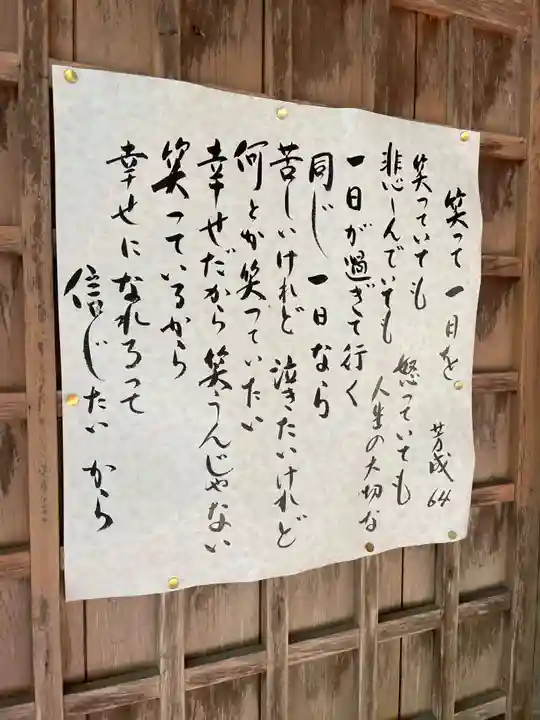 笑って一日を
芳成 64
笑っていても 怒っていても
悲しんでいても 人生の大切な
一日が過ぎて行く
同じ一日なら
苦しいけれど 泣きたいけれど
何とか笑っていたい
幸せだから 笑うんじゃない
笑っているから
幸せになれるって
信じたいから